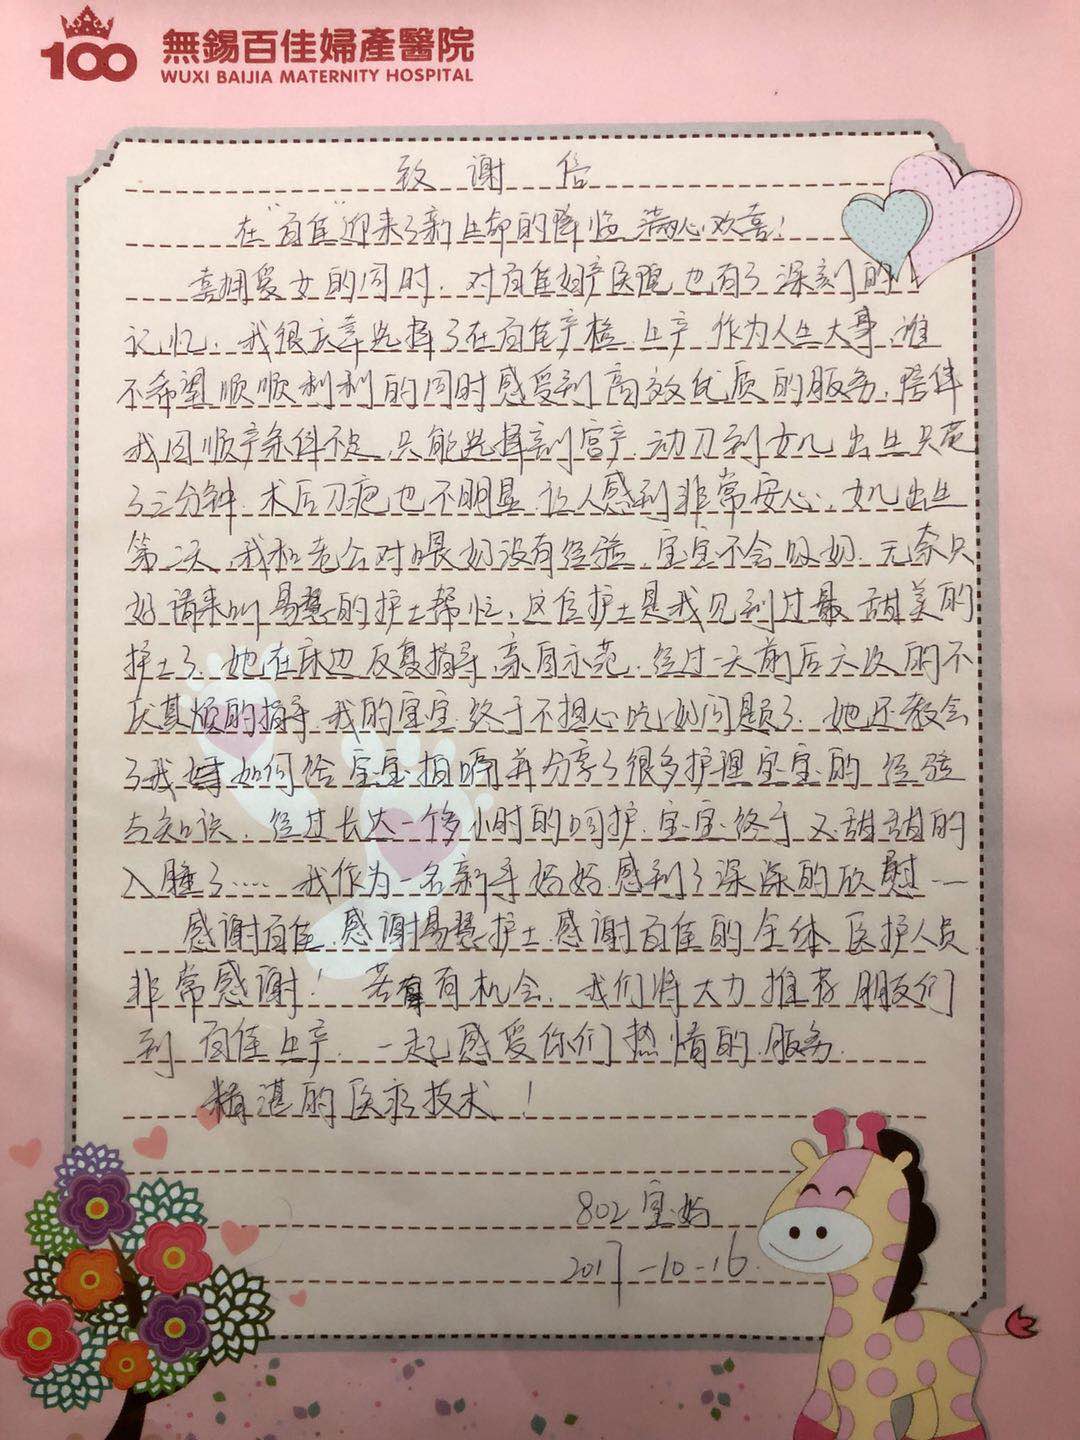 100 無錫百佳婦產醫院
WUXI BAIJIA MATERNITY HOSPITAL
致谢信
在"百佳"迎来了新生命的降临满心欢喜!
喜拥爱女的同时,对百佳妇产医院也有了深刻的
记忆,我很庆幸选择了在百佳产检.生产 作为人生大事,谁
不希望顺顺利利的同时感受到高效优质的服务,陪伴
我因顺产条件不足,只能选择剖宫产,动刀到女儿出生只花
了三分钟.术后刀疤也不明显 让人感到非常安心,女儿出生
第二天,我和老公对喂奶没有经验,宝宝不会吸奶.无奈只
好请来叫易慧的护士帮忙,这位护士是我见到过最甜美的
护士了.她在床边反复指导,亲自示范.经过一天前后六次的不
厌其烦的指导.我的宝宝终于不担心吃奶问题了.她还教会
了我如何给宝宝拍嗝并分享了很多护理宝宝的经验
与知识,经过长达一个多小时的呵护.宝宝终于又甜甜的
入睡了.... 我作为一名新手妈妈感到了深深的欣慰...
感谢百佳,感谢易慧护士.感谢百佳的全体医护人员
非常感谢!若有机会,我们将大力推荐朋友们
到百佳生产,一起感受你们热情的服务.
精湛的医疗技术!
802宝妈
2017-10-16.